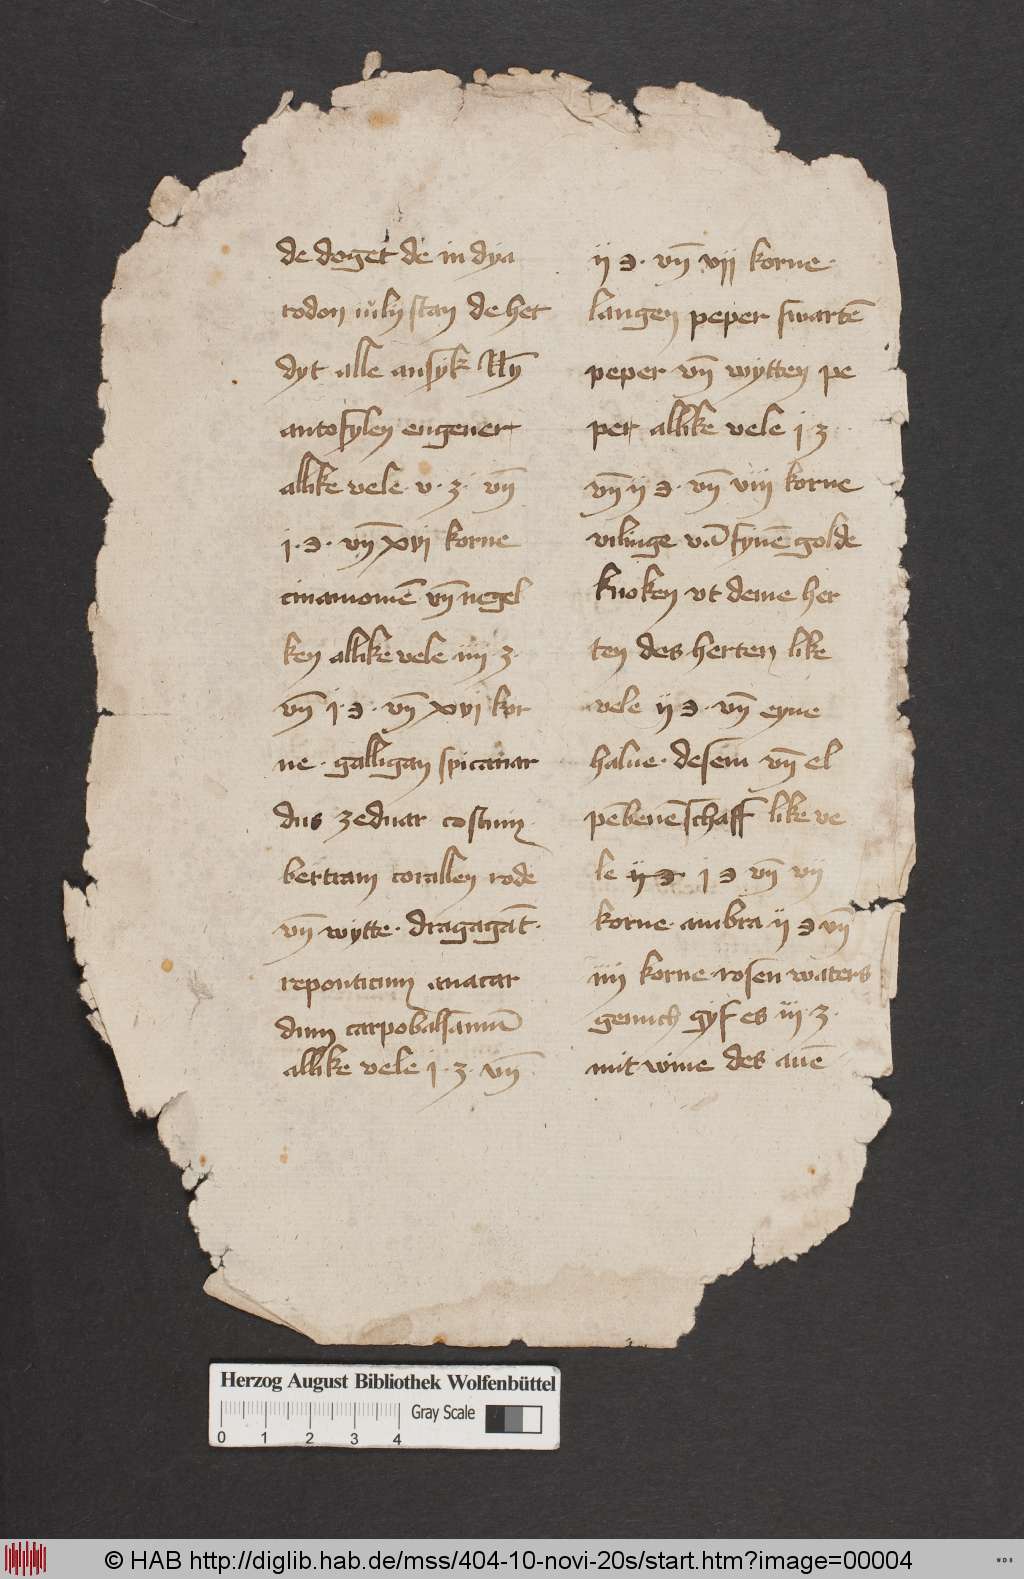 de doget de in dya
rodon iulij stan de het
dyt alle ansyk
antofylen engeuer
allike vele · v · ʒ · vn̄
j · ℈ · vn̄ xvj korne
cinamomē vn̄ negel
ken allike vele iiij · ʒ ·
vn̄ j · ℈ · vn̄ xvj kor
ne · galligan spicanar
dus zeduar costum
bertram corallen rode
vn̄ wytte · dragagāt ·
reponticum anacar
dium carpobalsamū
allike vele j · ʒ · vn̄
ij ℈ · vn̄ vij korne ·
langen peper swartē
peper vn̄ wytten pe
per allike vele j · ʒ
vn̄ ij ℈ · vn̄ viij korne
vilinge vā fynē golde
knoken vt deme her
ten des herten like
vele ij ℈ · vn̄ eyne
halue · desem vn̄ el
pēbenē schaff like ve
le ij ℈ · j ℈ vn̄ vij
korne · ambra ij ℈ vn̄
iiij korne rosen waters
genuch gyf es iij · ʒ ·
mit wine des auē
Herzog August Bibliothek Wolfenbüttel
0 1 2 3 4
Gray Scale
© HAB http://diglib.hab.de/mss/404-10-novi-20s/start.htm?image=00004